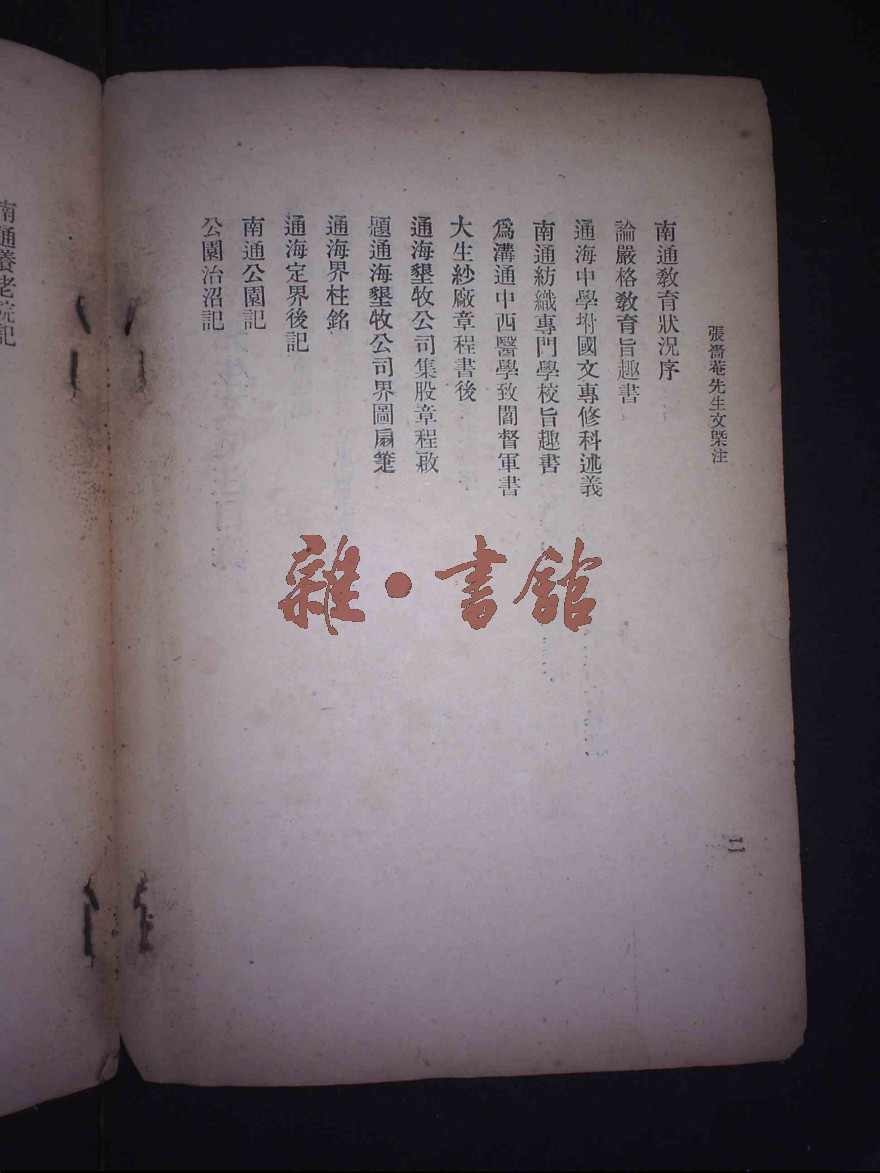 張嗇菴先生文槩注
南通教育狀況序
論嚴格教育旨趣書
通海中學坿國文專修科述義
南通紡織專門學校旨趣書
爲溝通中西醫學致閻督軍書
大生紗廠章程書後
通海墾牧公司集股章程啟
題通海墾牧公司界圖扇箑
通海界柱銘
通海定界後記
南通公園記
公園治沼記
二
南通養老院記
雜·書館